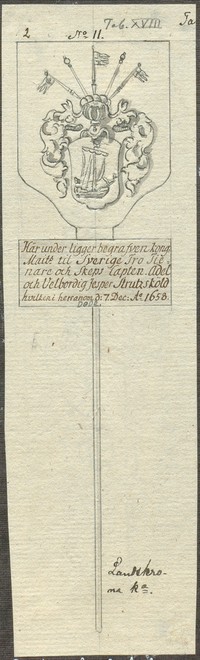 Tab. XVIII
Ta
2
No 11.
Här under ligger begrafven kong
Maits til Sverige Tro Tie-
nare och Skeps Capten. Adel
och Velbordig Jesper Strutzsköld
hvilken i herranom d: 7. Dec: Ao 1658.
Landskro-
na ka.